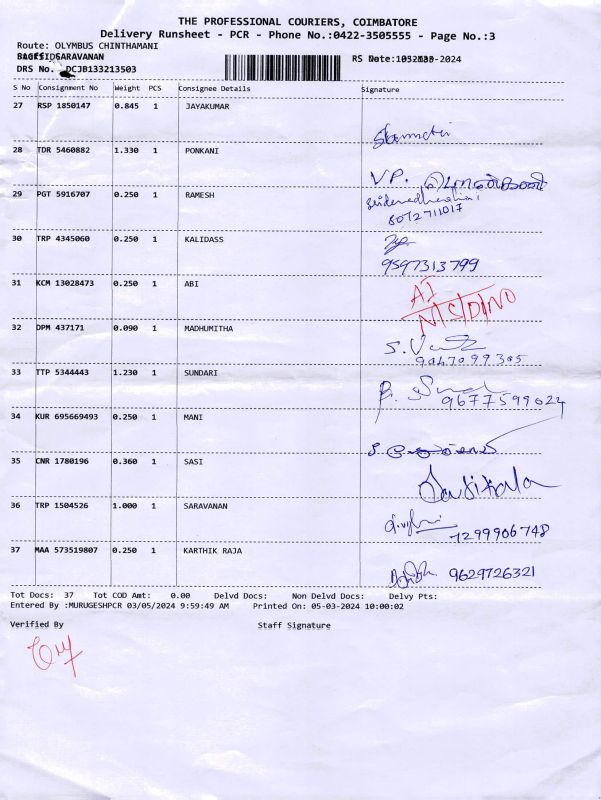 THE PROFESSIONAL COURIERS, COIMBATORE
Delivery Runsheet - PCR - Phone No.:0422-3505555 - Page No.:3
Route: OLYMBUS CHINTHAMANI
SARAVANAN RS Date: -2024
DRS No. DCJB133213503
S No Consignment No Weight PCS Consignee Details Signature
27 RSP 1850147 0.845 1 JAYAKUMAR
28 TDR 5460882 1.330 1 PONKANI
VP.
29 PGT 5916707 0.250 1 RAMESH
8072711017
30 TRP 4345060 0.250 1 KALIDASS
9597313799
31 KCM 13028473 0.250 1 ABI
AI
N/S/D/NO
32 DPM 437171 0.090 1 MADHUMITHA
S.
9047099305
33 TTP 5344443 1.230 1 SUNDARI
9677599024
34 KUR 695669493 0.250 1 MANI
35 CNR 1780196 0.360 1 SASI
Sasikala
36 TRP 1504526 1.000 1 SARAVANAN
7299906748
37 MAA 573519807 0.250 1 KARTHIK RAJA
9629726321
Tot Docs: 37 Tot COD Amt: 0.00 Delvd Docs: Non Delvd Docs: Delvy Pts:
Entered By :MURUGESHPCR 03/05/2024 9:59:49 AM Printed On: 05-03-2024 10:00:02
Verified By Staff Signature